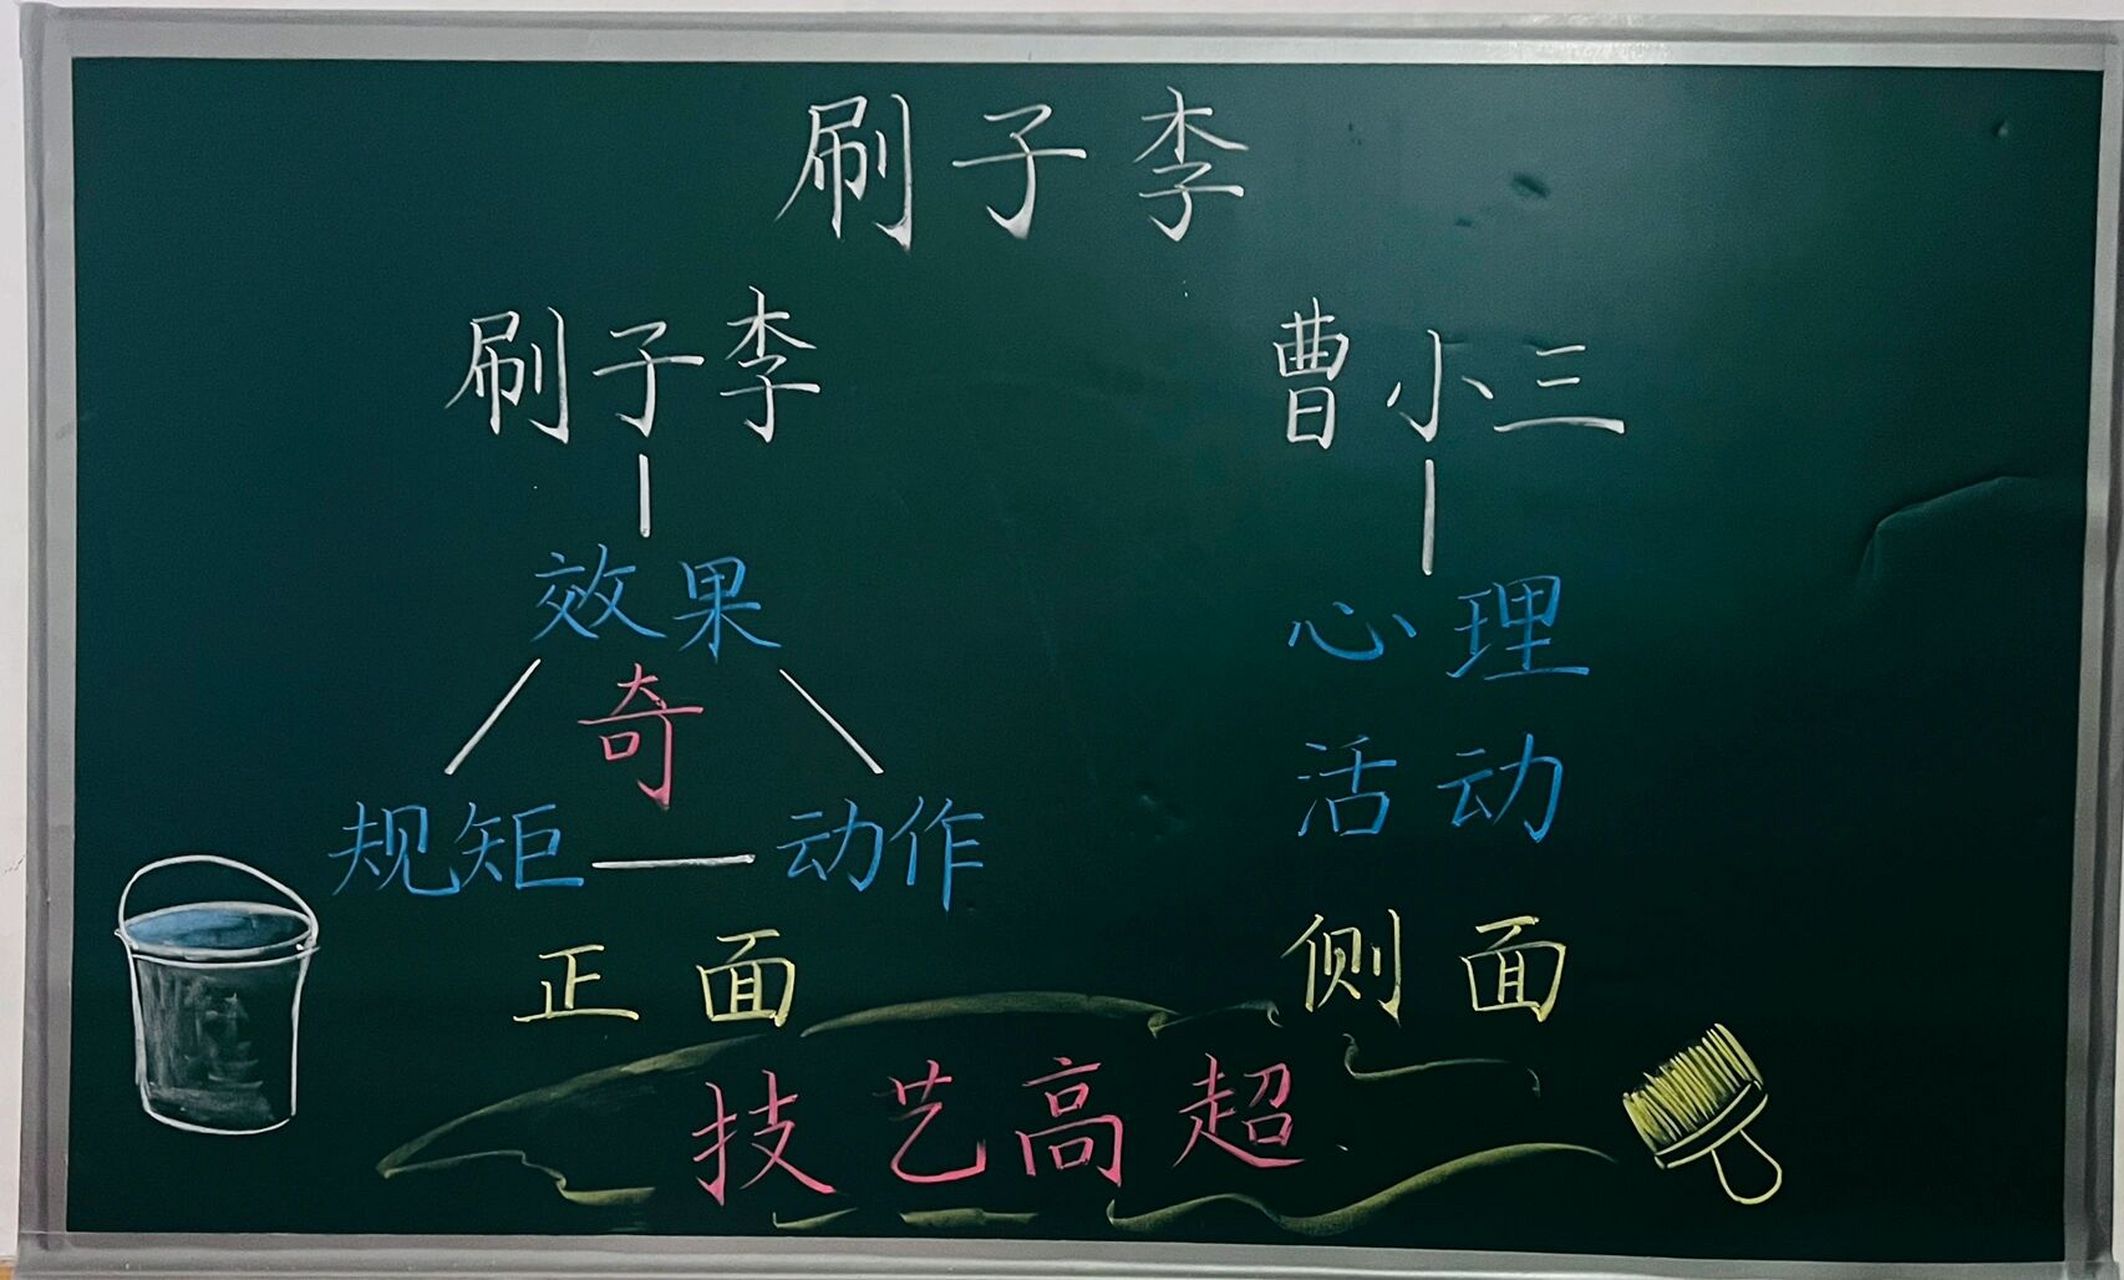 刷子李
刷子李 曹小三
效果 心理
奇
规矩 动作 活动
正面 侧面
技艺高超